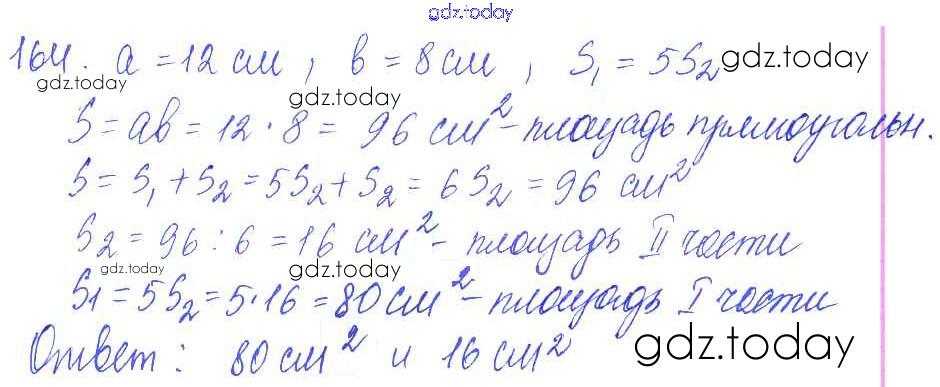 gdz.today
164. a = 12 см, b = 8 см, S₁ = 5S₂ gdz.today
gdz.today gdz.today
S = ab = 12 · 8 = 96 см² - площадь прямоугольн.
S = S₁ + S₂ = 5S₂ + S₂ = 6S₂ = 96 см²
S₂ = 96 : 6 = 16 см² - площадь II части
gdz.today gdz.today
S₁ = 5S₂ = 5·16 = 80 см² - площадь I части
Ответ: 80 см² и 16 см² gdz.today